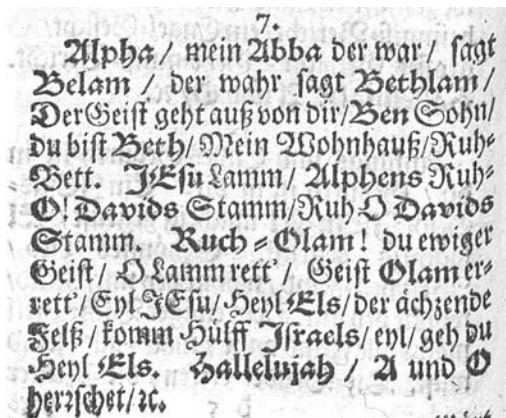 7.
Alpha / mein Abba der war / sagt
Belam / der wahr sagt Bethlam /
Der Geist geht auß von dir / Ben Sohn /
du bist Beth / Mein Wohnhauß / Ruh⸗
Bett. JEsu Lamm / Alphens Ruh⸗
O! Davids Stamm / Ruh O Davids
Stamm. Ruch ⸗ Olam! du ewiger
Geist / O Lamm rett' / Geist Olam er⸗
rett' / Eyl JEsu / Heyl Els / der ächzende
Felß / komm Hülff Jsraels / eyl / geh du
Heyl Els. Hallelujah / A und O
herrschet / ꝛc.